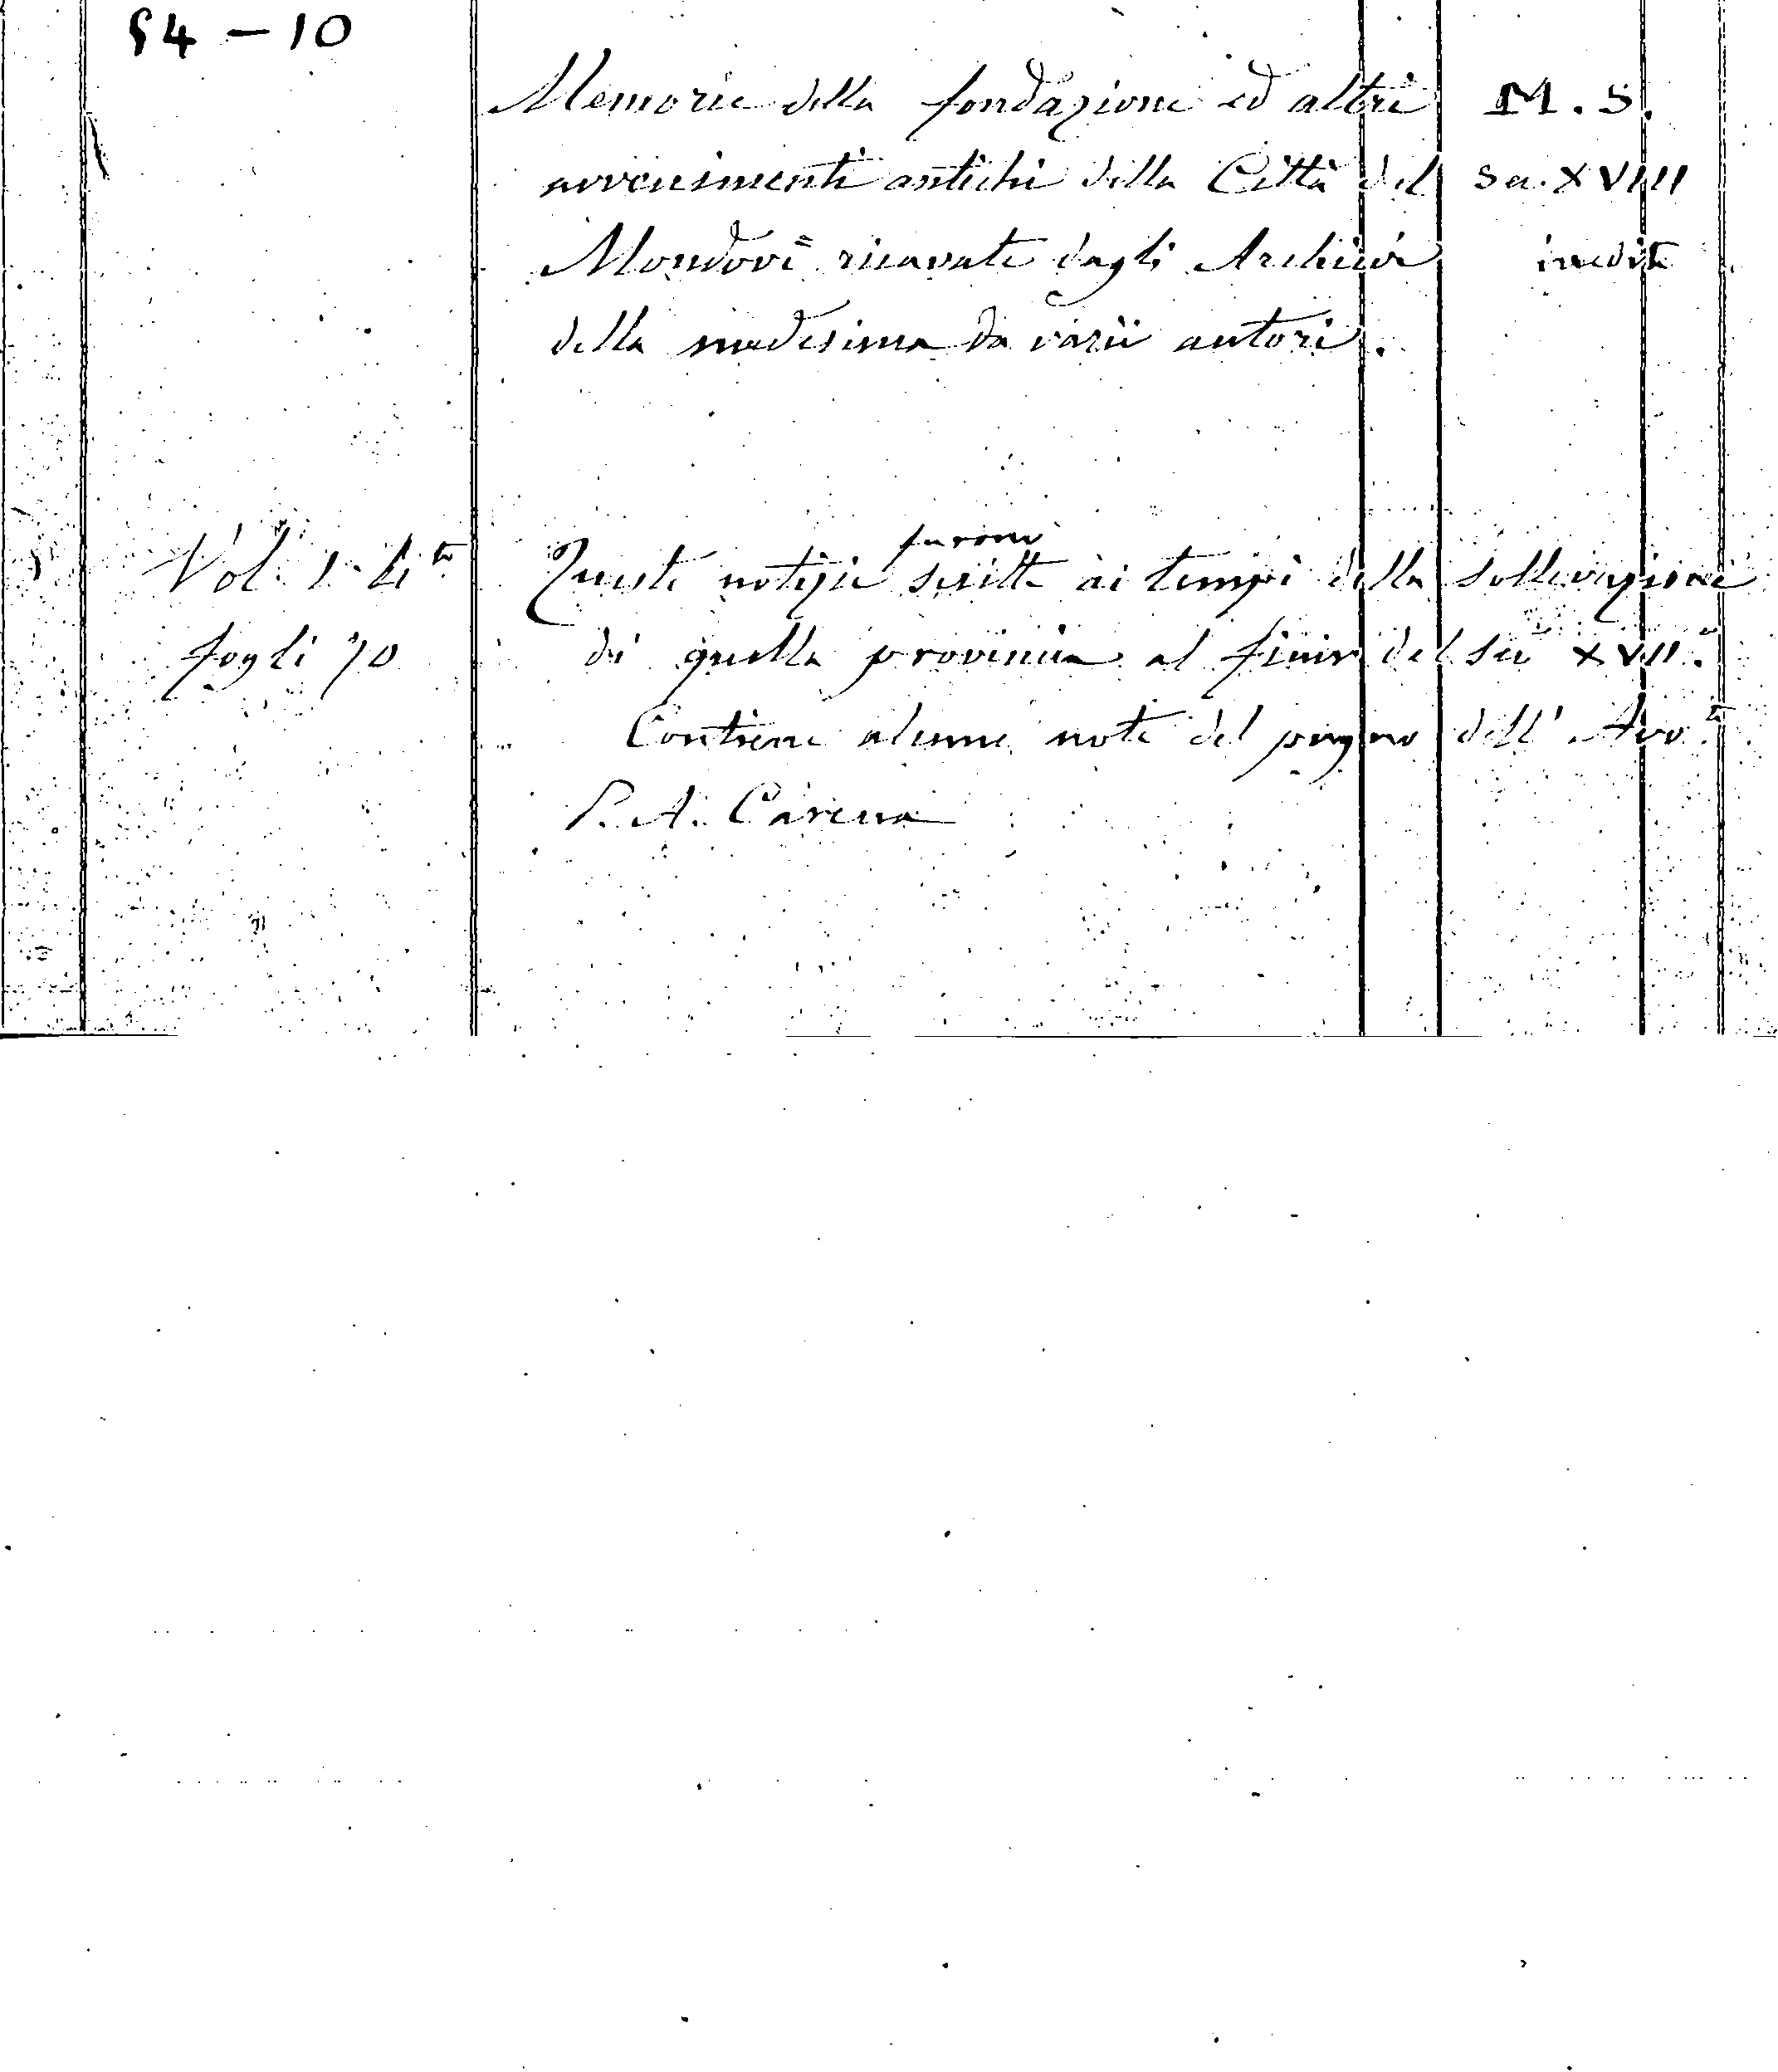 54 - 10
Memorie della fondazione ed altri M. S.
avvenimenti antichi della Città del Sec. XVIII
Mondovì ricavate dagli Archivi inedite
della medesima da varii autori.
furono
Vol. 1. 4to Queste notizie scritte ai tempi della sollevazione
fogli 70 di quella provincia al finir del sec XVII.
Contiene alcune note del pugno dell' Avv.to
P. A. Carena